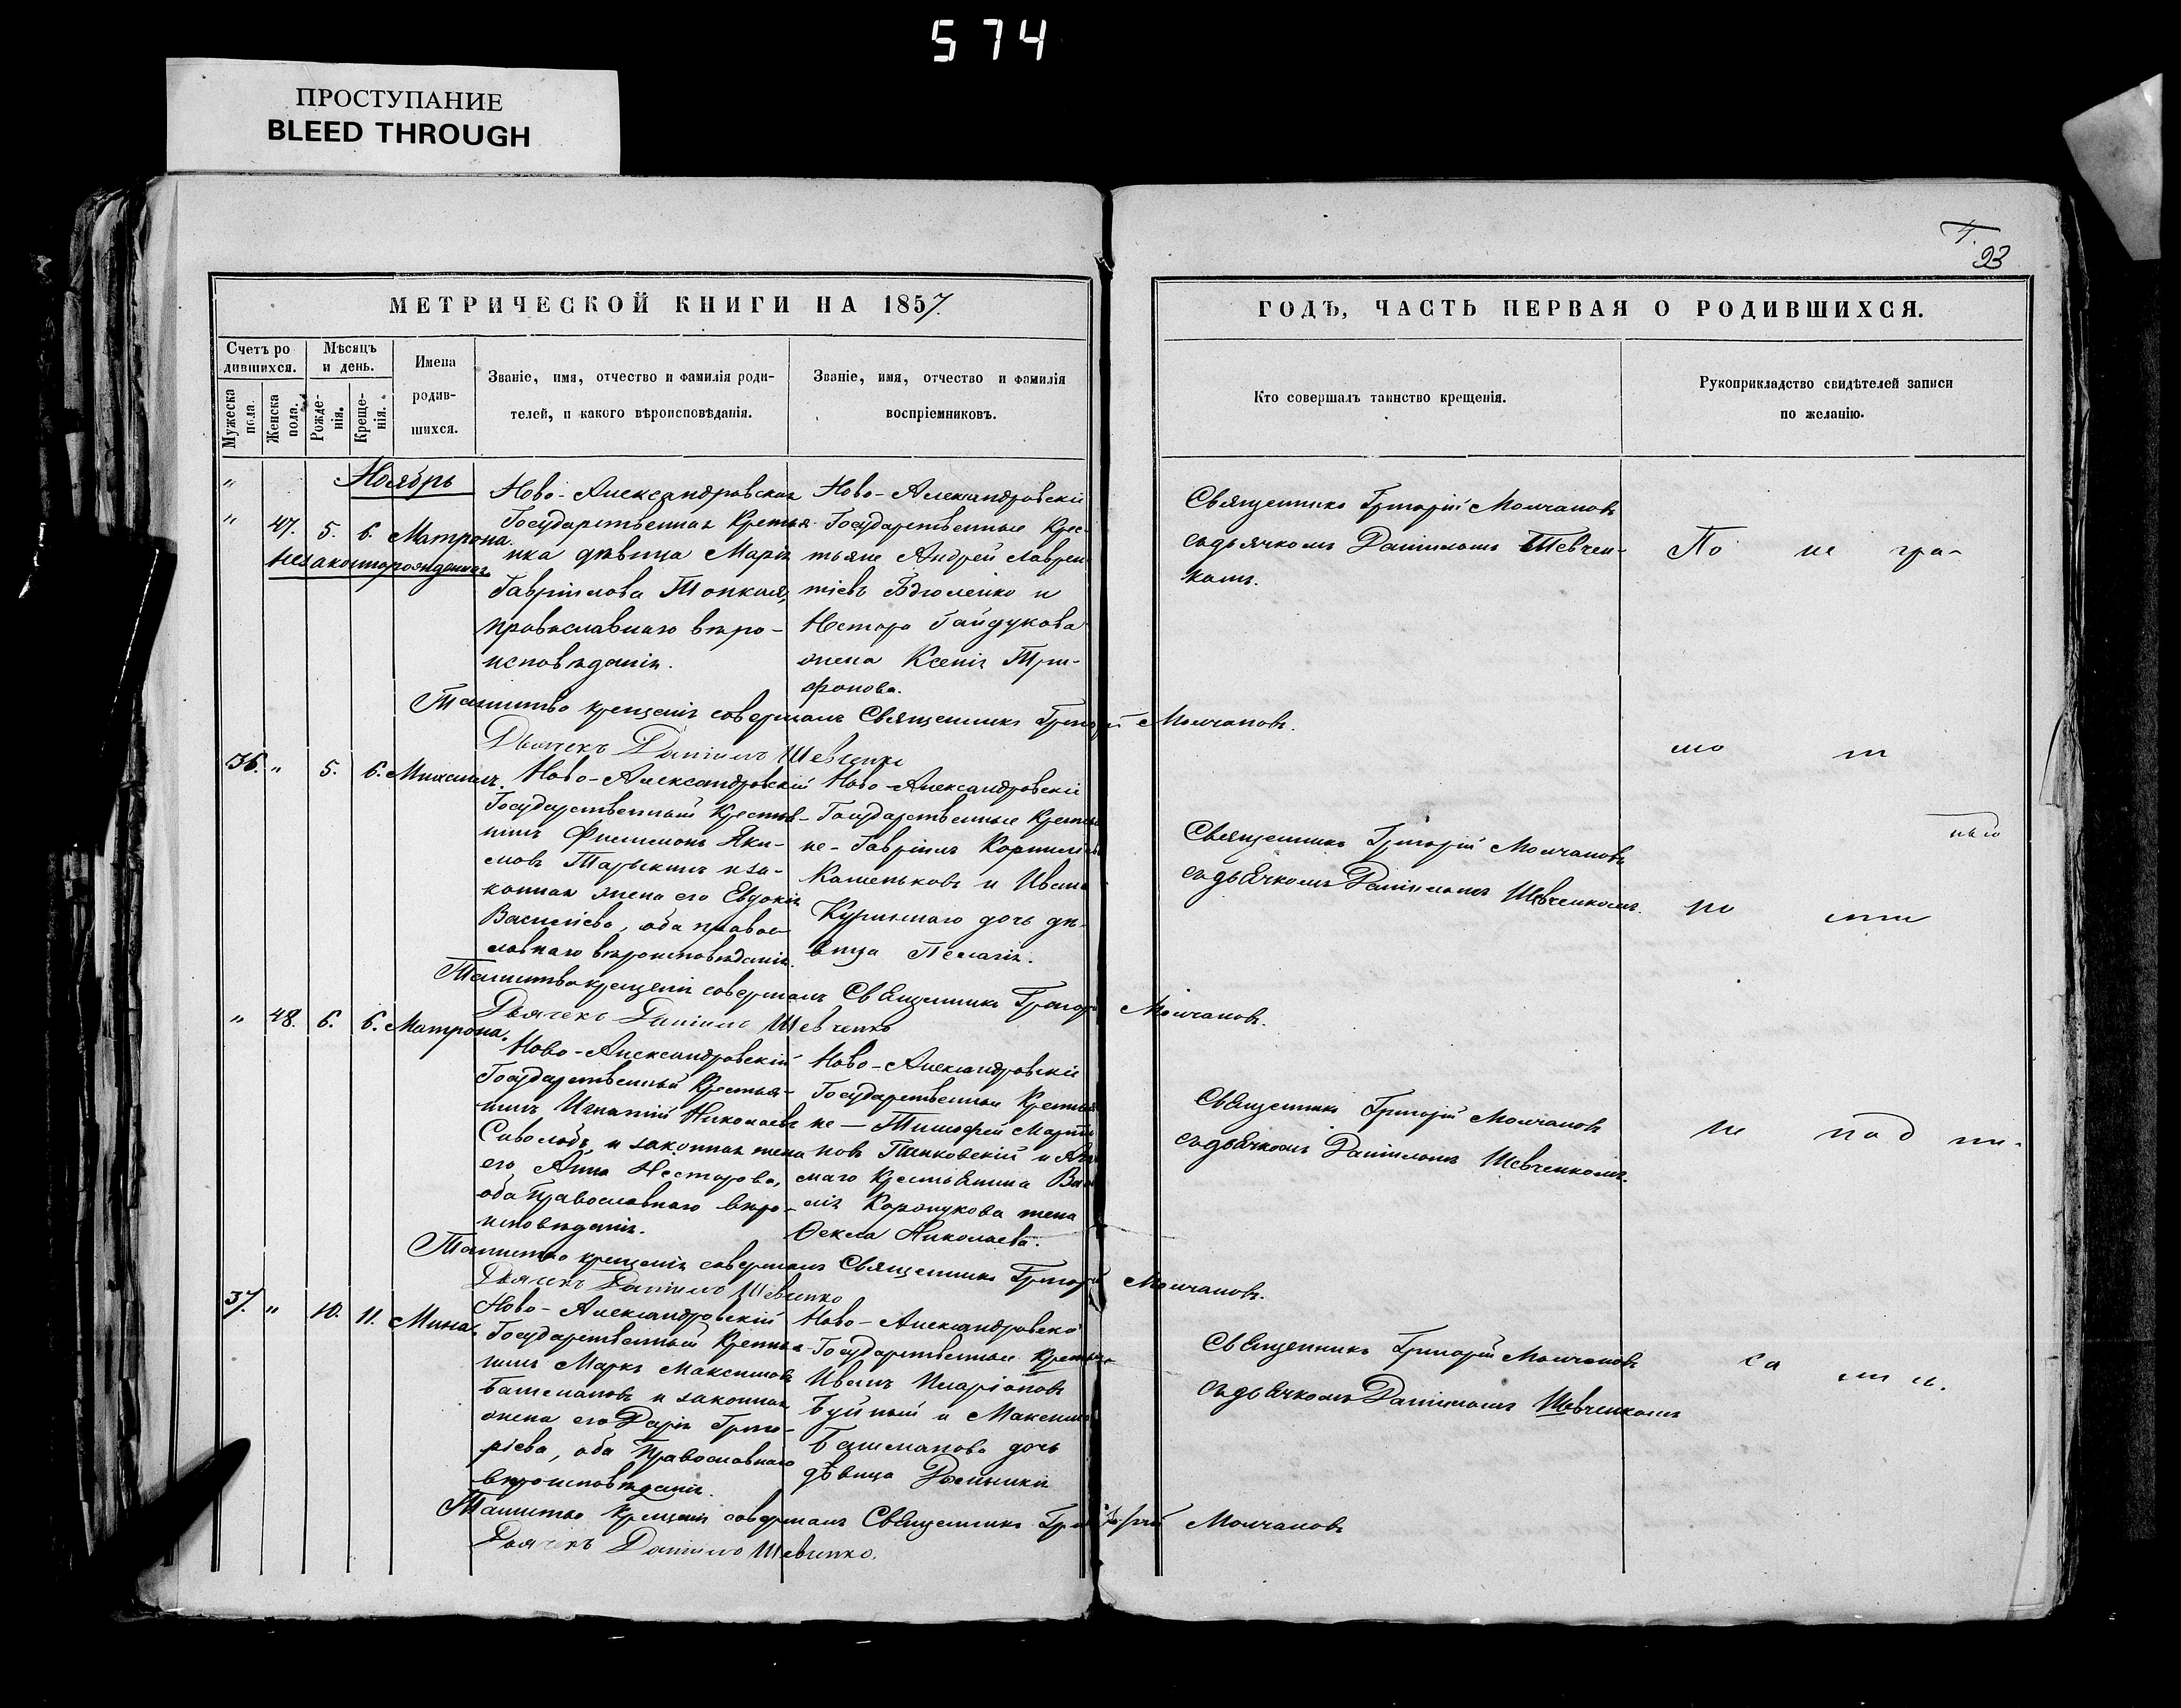 574
ПРОСТУПАНИЕ
BLEED THROUGH
23
МЕТРИЧЕСКОЙ КНИГИ НА 1857.
Счетъ ро
дившихся.
Мужеска
пола.
Женска
пола.
Мѣсяцъ
и день.
Рожде-
нія.
Креще-
нія.
Имена
родив-
шихся.
Званіе, имя, отчество и фамилія роди-
телей, и какого вѣроисповѣданія.
Званіе, имя, отчество и фамилія
воспріемниковъ.
ГОДЪ, ЧАСТЬ ПЕРВАЯ О РОДИВШИХСЯ.
Кто совершалъ таинство крещенія.
Рукоприкладство свидѣтелей записи
по желанію.
Ноябрь
" 47. 5. 6. Матрона.
незаконнорожденная.
Ново-Александровская
Государственная Крестья-
нка дѣвица Марія
Гавріилова
православнаго вѣро-
исповѣданія.
Ново-Александровскіе
Государственные Крес-
тьяне Андрей Лаврен-
тіевъ и
Нестора Гайдукова
жена Ксенія Три-
фонова.
Священникъ Григорій Молчановъ
съ дьячкомъ Даніиломъ Шевчен-
комъ.
По не гра-
Таинство крещенія совершалъ Священникъ Григорій Молчановъ.
Дьячекъ Даніилъ Шевченко
мо т
36. " 5. 6. Михаилъ.
Ново-Александровскій
Государственный Крестья-
нинъ Филимонъ Яки-
мовъ и за-
конная жена его Евдокія
Васильева, оба правос-
лавнаго вѣроисповѣданія.
Ново-Александровскіе
Государственные Крестья-
не - Гавріилъ Корниліевъ
Каменьковъ и Ивана
дочь дѣ-
вица Пелагія.
Священникъ Григорій Молчановъ
съ дьячкомъ Даніиломъ Шевченкомъ.
но сти
Таинство крещенія совершалъ Священникъ Григорій Молчановъ.
Дьячекъ Даніилъ Шевченко
" 48. 6. 6. Матрона.
Ново-Александровскій
Государственный Крестья-
нинъ Игнатій Николаевъ
и законная жена
его Анна Несторова,
оба Православнаго вѣро-
исповѣданія.
Ново-Александровскіе
Государственные Крестья-
не - Тимофей Марти-
новъ и
Крестьянина Васи-
лія жена
Ѳекла Николаева.
Священникъ Григорій Молчановъ
съ дьячкомъ Даніиломъ Шевченкомъ.
не под пи-
Таинство крещенія совершалъ Священникъ Григорій Молчановъ.
Дьячекъ Даніилъ Шевченко
37. " 10. 11. Мина.
Ново-Александровскій
Государственный Крестья-
нинъ Маркъ Максимовъ
Башмановъ и законная
жена его Дарія Григо-
ріева, оба Православнаго
вѣроисповѣданія.
Ново-Александровскіе
Государственные Крестьяне
Иванъ Иларіоновъ
Буйный и Максима
Башманова дочь
дѣвица
Священникъ Григорій Молчановъ
съ дьячкомъ Даніиломъ Шевченкомъ
са
Таинство крещенія совершалъ Священникъ Григорій Молчановъ
Дьячекъ Даніилъ Шевченко.